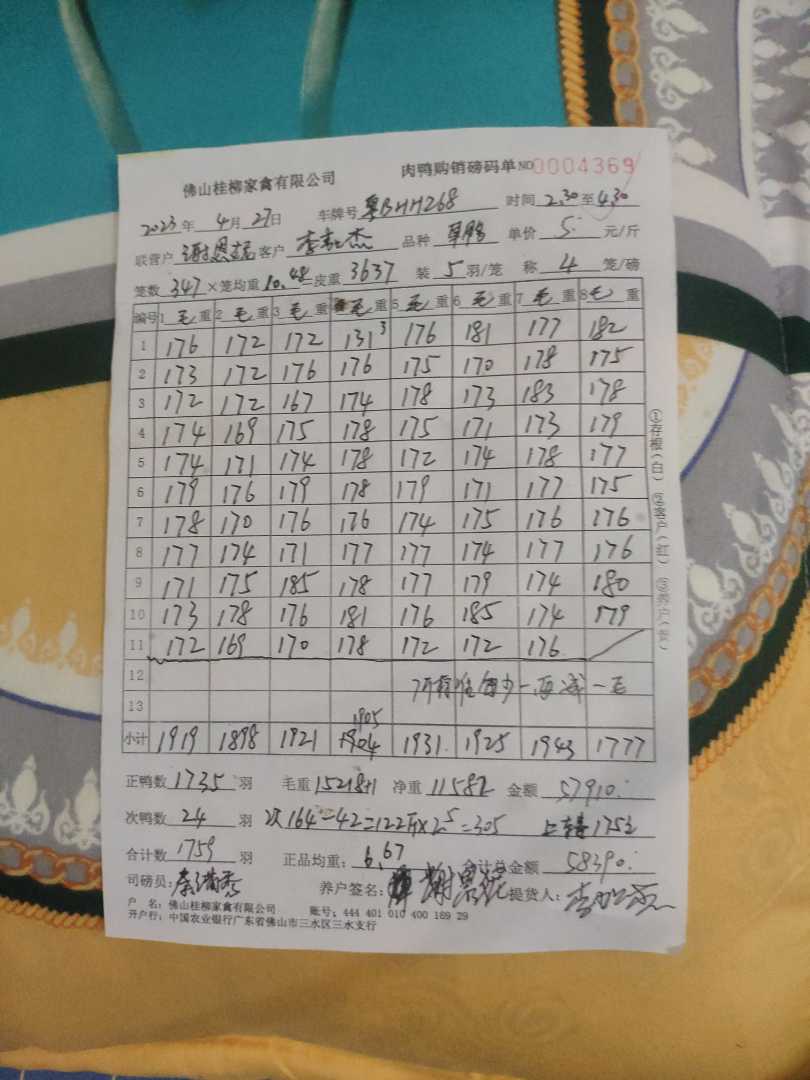 佛山桂柳家禽有限公司 肉鸭购销磅码单 NO 0004369
2023年 4月 27日 车牌号 粤BHH268 时间 2.30 至 4.30
联营户 谢恩 客户 李 杰 品种 单价 5. 元/斤
笼数 347 ×笼均重 10.48 皮重 3637 装 5 羽/笼 称 4 笼/磅
编号 1 毛 重 2 毛 重 3 毛 重 毛 重 5 毛 重 6 毛 重 7 毛 重 8 毛 重
1 176 172 172 131³ 176 181 177 182
2 173 172 176 176 175 170 178 175
3 172 172 167 174 178 173 183 178
4 174 169 175 178 175 171 173 179
5 174 171 174 178 172 174 178 177
6 179 176 179 178 179 171 177 175
7 178 170 176 176 174 175 176 176
8 177 174 171 177 177 174 177 176
9 171 175 185 178 177 179 174 180
10 173 178 176 181 176 185 174 179
11 172 169 170 178 172 172 176
12 少一 减一毛
13
1905
小计 1919 1898 1921 1904 1931. 1925 1943 1777
正鸭数 1735 羽 毛重 15218+1 净重 11582 金额 57910.
次鸭数 24 羽 次164-42=122斤×2.5=305 上车 1752
合计数 1759 羽 正品均重: 6.67 合计总金额 58390.
司磅员: 养户签名: 谢恩 提货人:
户 名: 佛山桂柳家禽有限公司 账号: 444 401 010 400 189 29
开户行: 中国农业银行广东省佛山市三水区三水支行
①存根(白) ②客户(红) ③养户(黄)